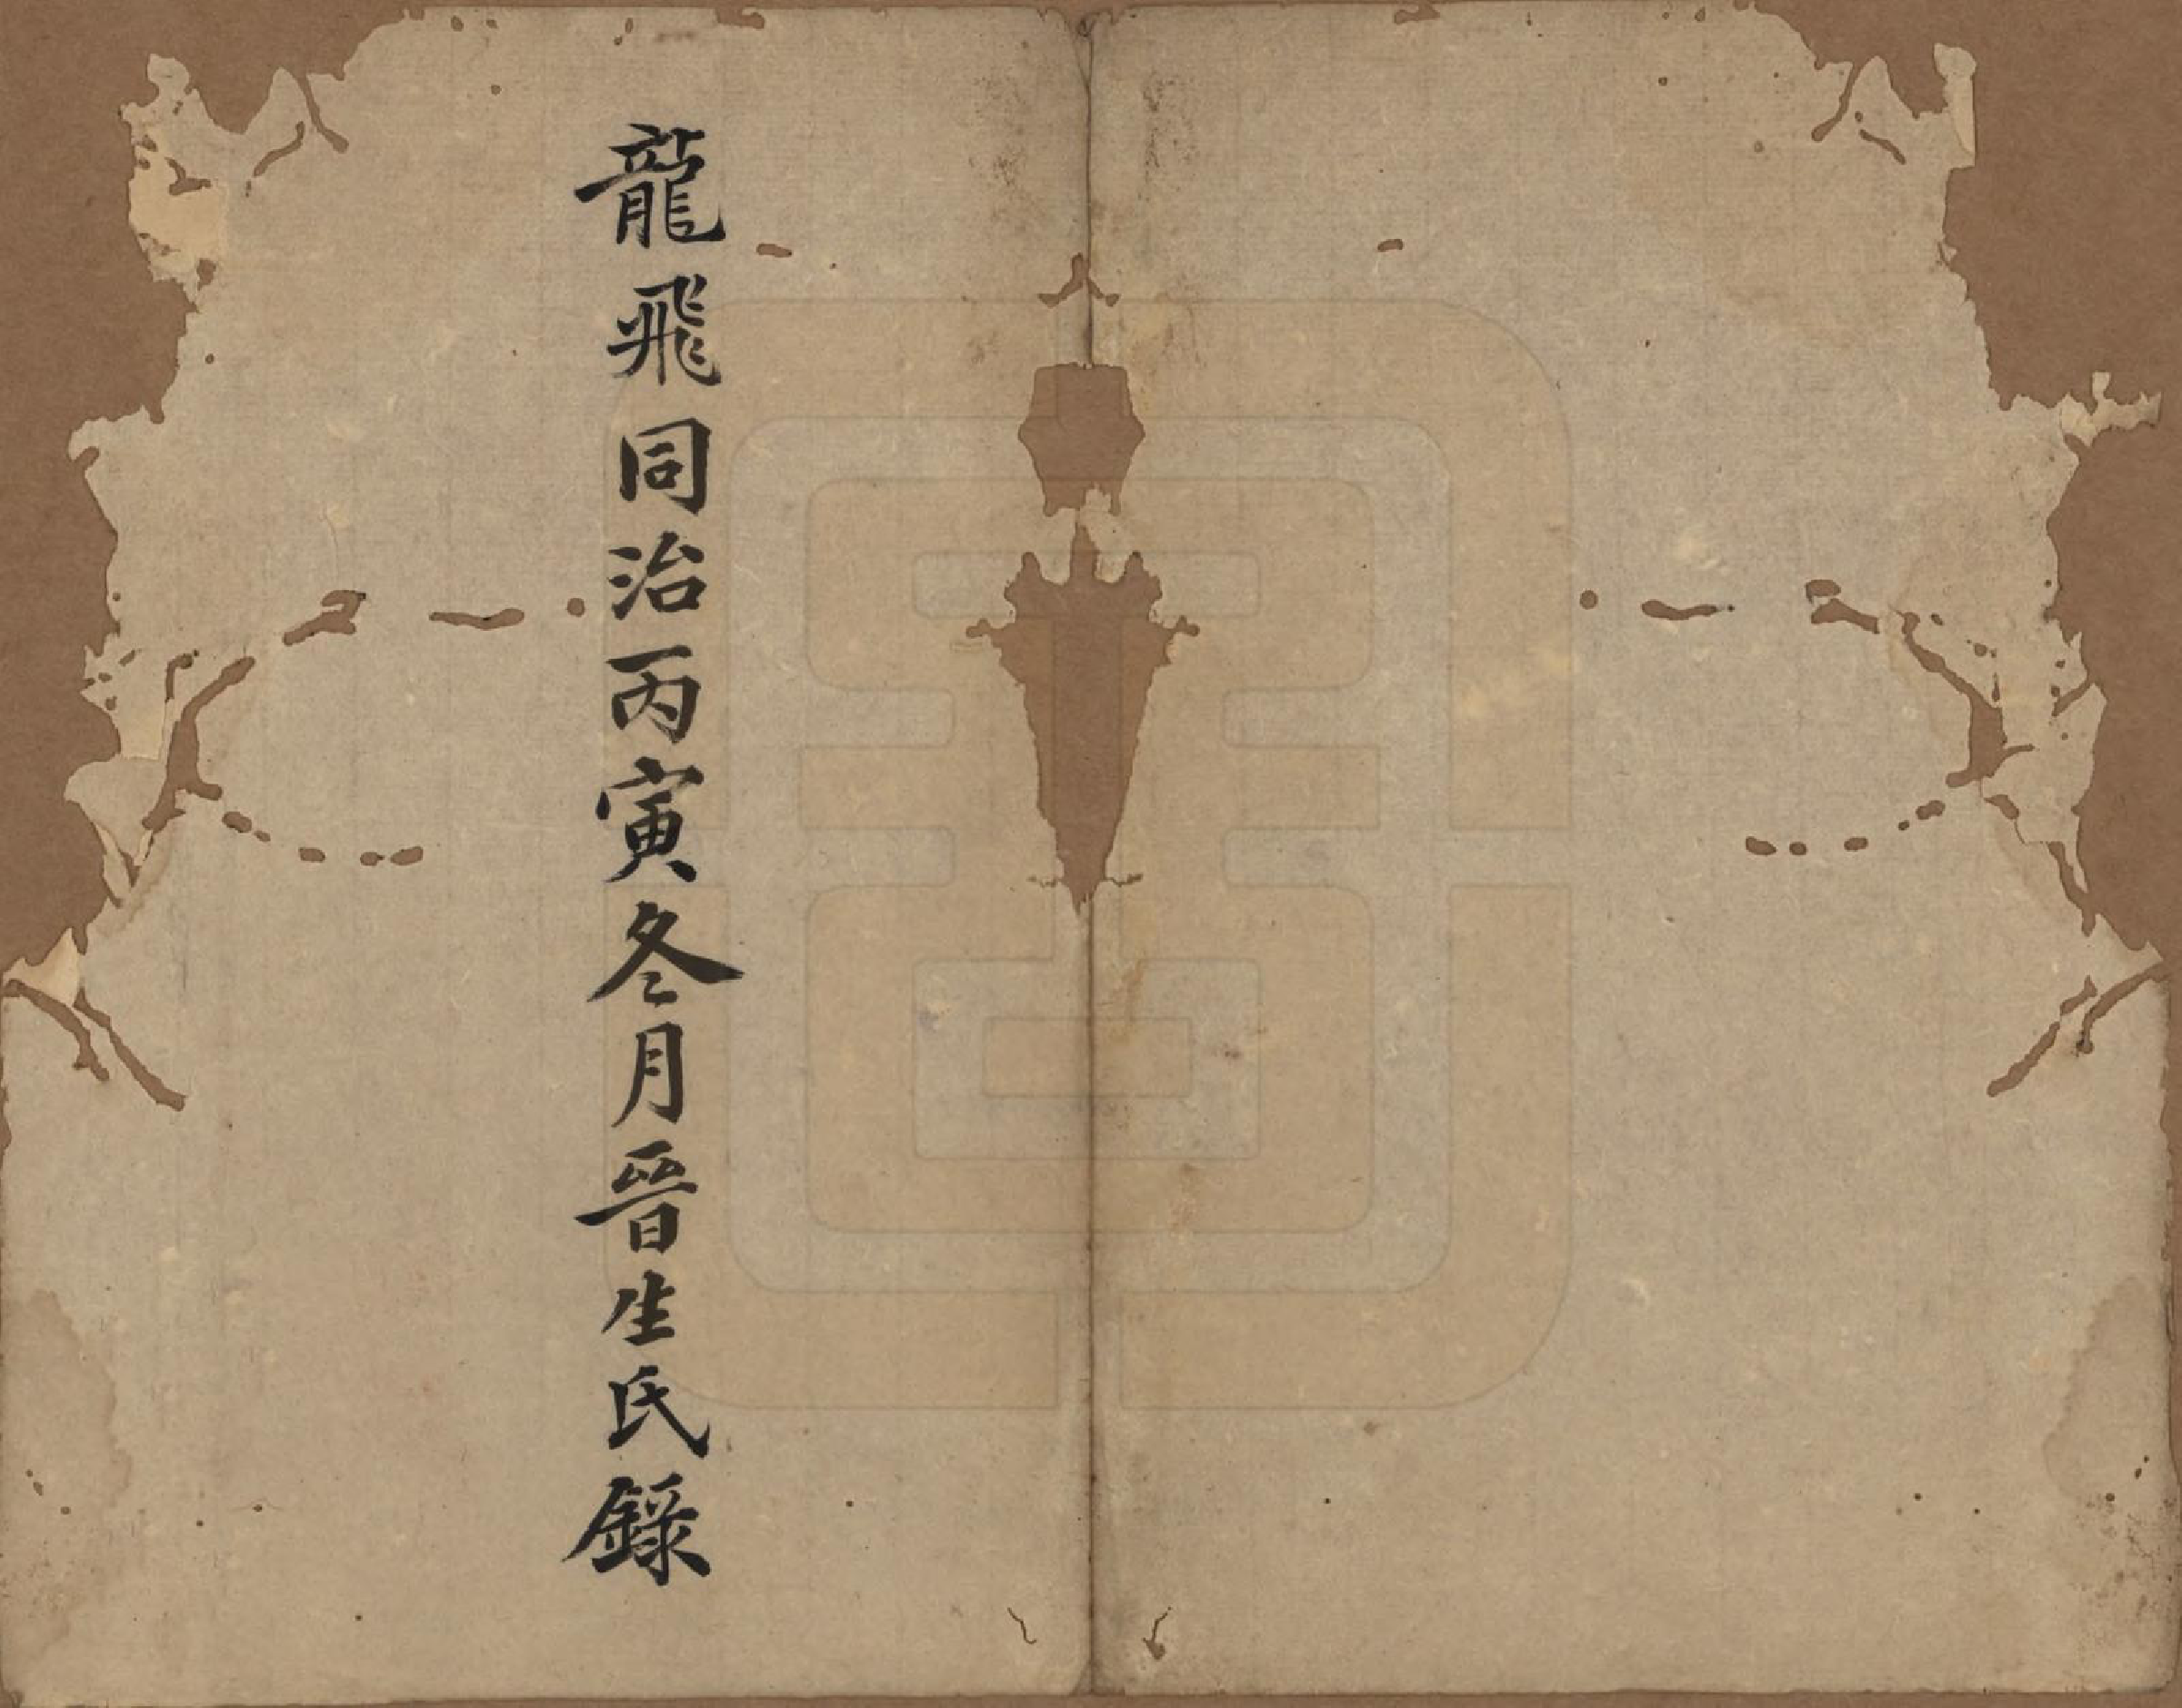 龍飛同治丙寅冬月晉生氏錄